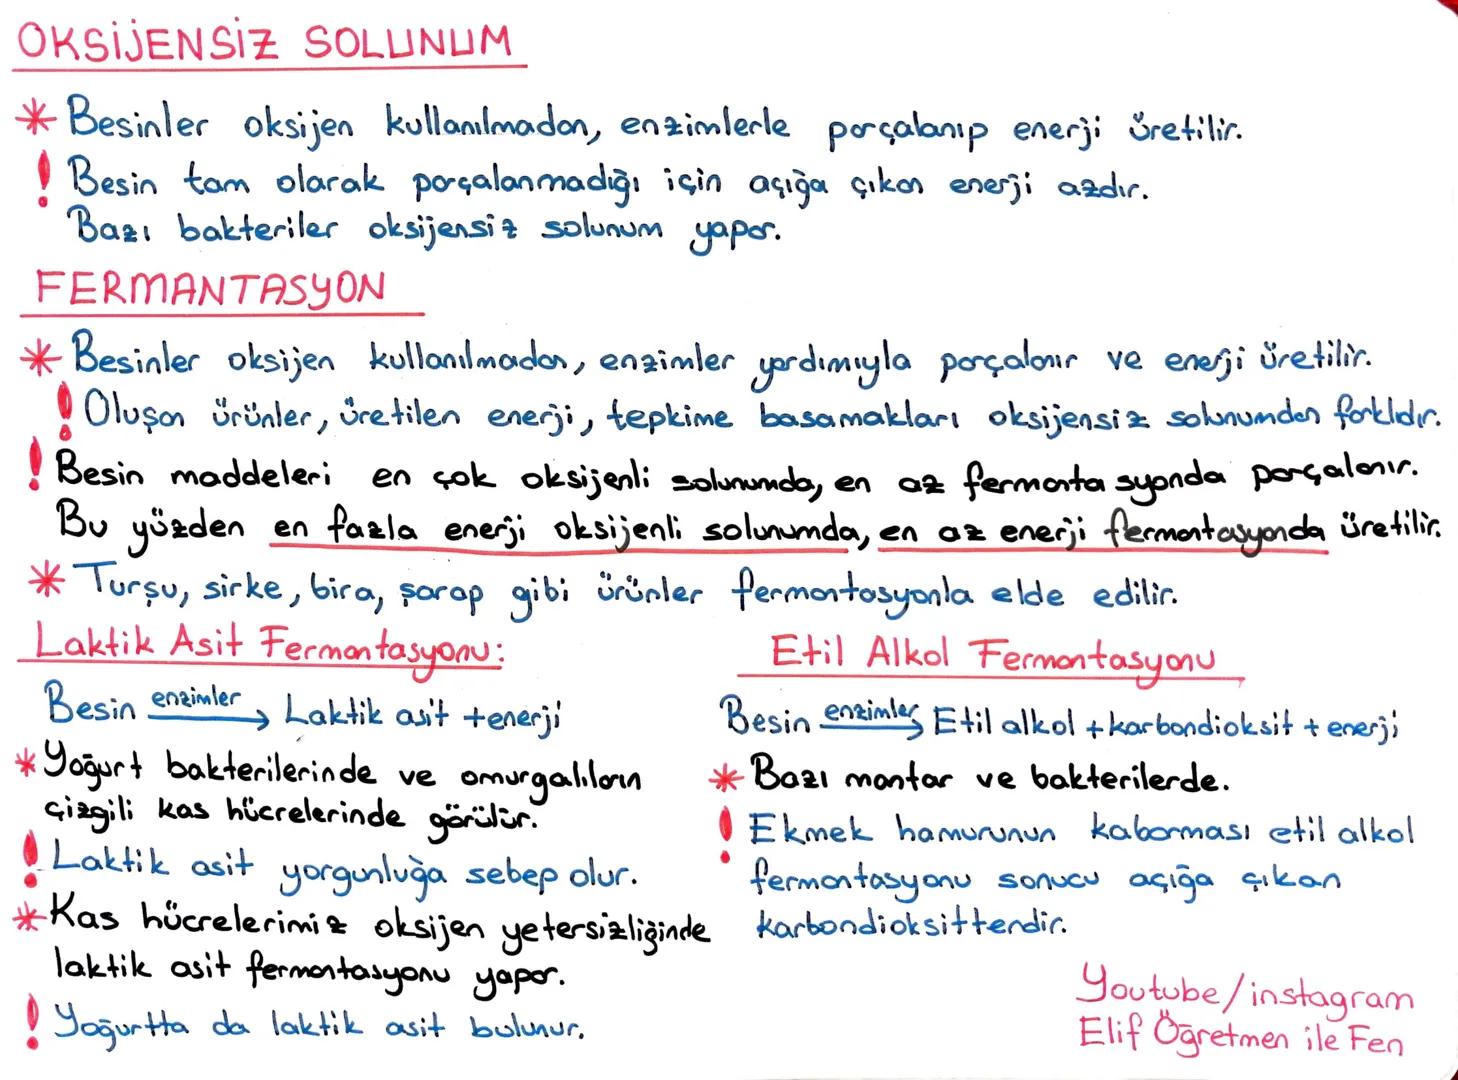 OKSİJENSİZ SOLUNUM
* Besinler oksijen kullanılmadan, enzimlerle parçalanıp enerji üretilir.
! Besin tam olarak parçalanmadığı için açığa çıkan enerji azdır.
Bazı bakteriler oksijensiz solunum yapar.
FERMANTASYON
* Besinler oksijen kullanılmadan, enzimler yardımıyla parçalanır ve enerji üretilir.
! Oluşan ürünler, üretilen enerji, tepkime basamakları oksijensiz solunumdan farklıdır.
! Besin maddeleri en çok oksijenli solunumda, en az fermantasyonda parçalanır.
Bu yüzden en fazla enerji oksijenli solunumda, en az enerji fermantasyonda üretilir.
* Turşu, sirke, bira, şarap gibi ürünler fermantasyonla elde edilir.
Laktik Asit Fermantasyonu:
Besin enzimler → Laktik asit + enerji
* Yoğurt bakterilerinde ve omurgalıların
çizgili kas hücrelerinde görülür.
! Laktik asit yorgunluğa sebep olur.
* Kas hücrelerimiz oksijen yetersizliğinde
laktik asit fermantasyonu yapar.
! Yoğurtta da laktik asit bulunur.
Etil Alkol Fermantasyonu
Besin enzimler → Etil alkol + karbondioksit + enerji
* Bazı mantar ve bakterilerde.
! Ekmek hamurunun kabarması etil alkol
fermantasyonu sonucu açığa çıkan
karbondioksittendir.
Youtube/instagram
Elif Öğretmen ile Fen